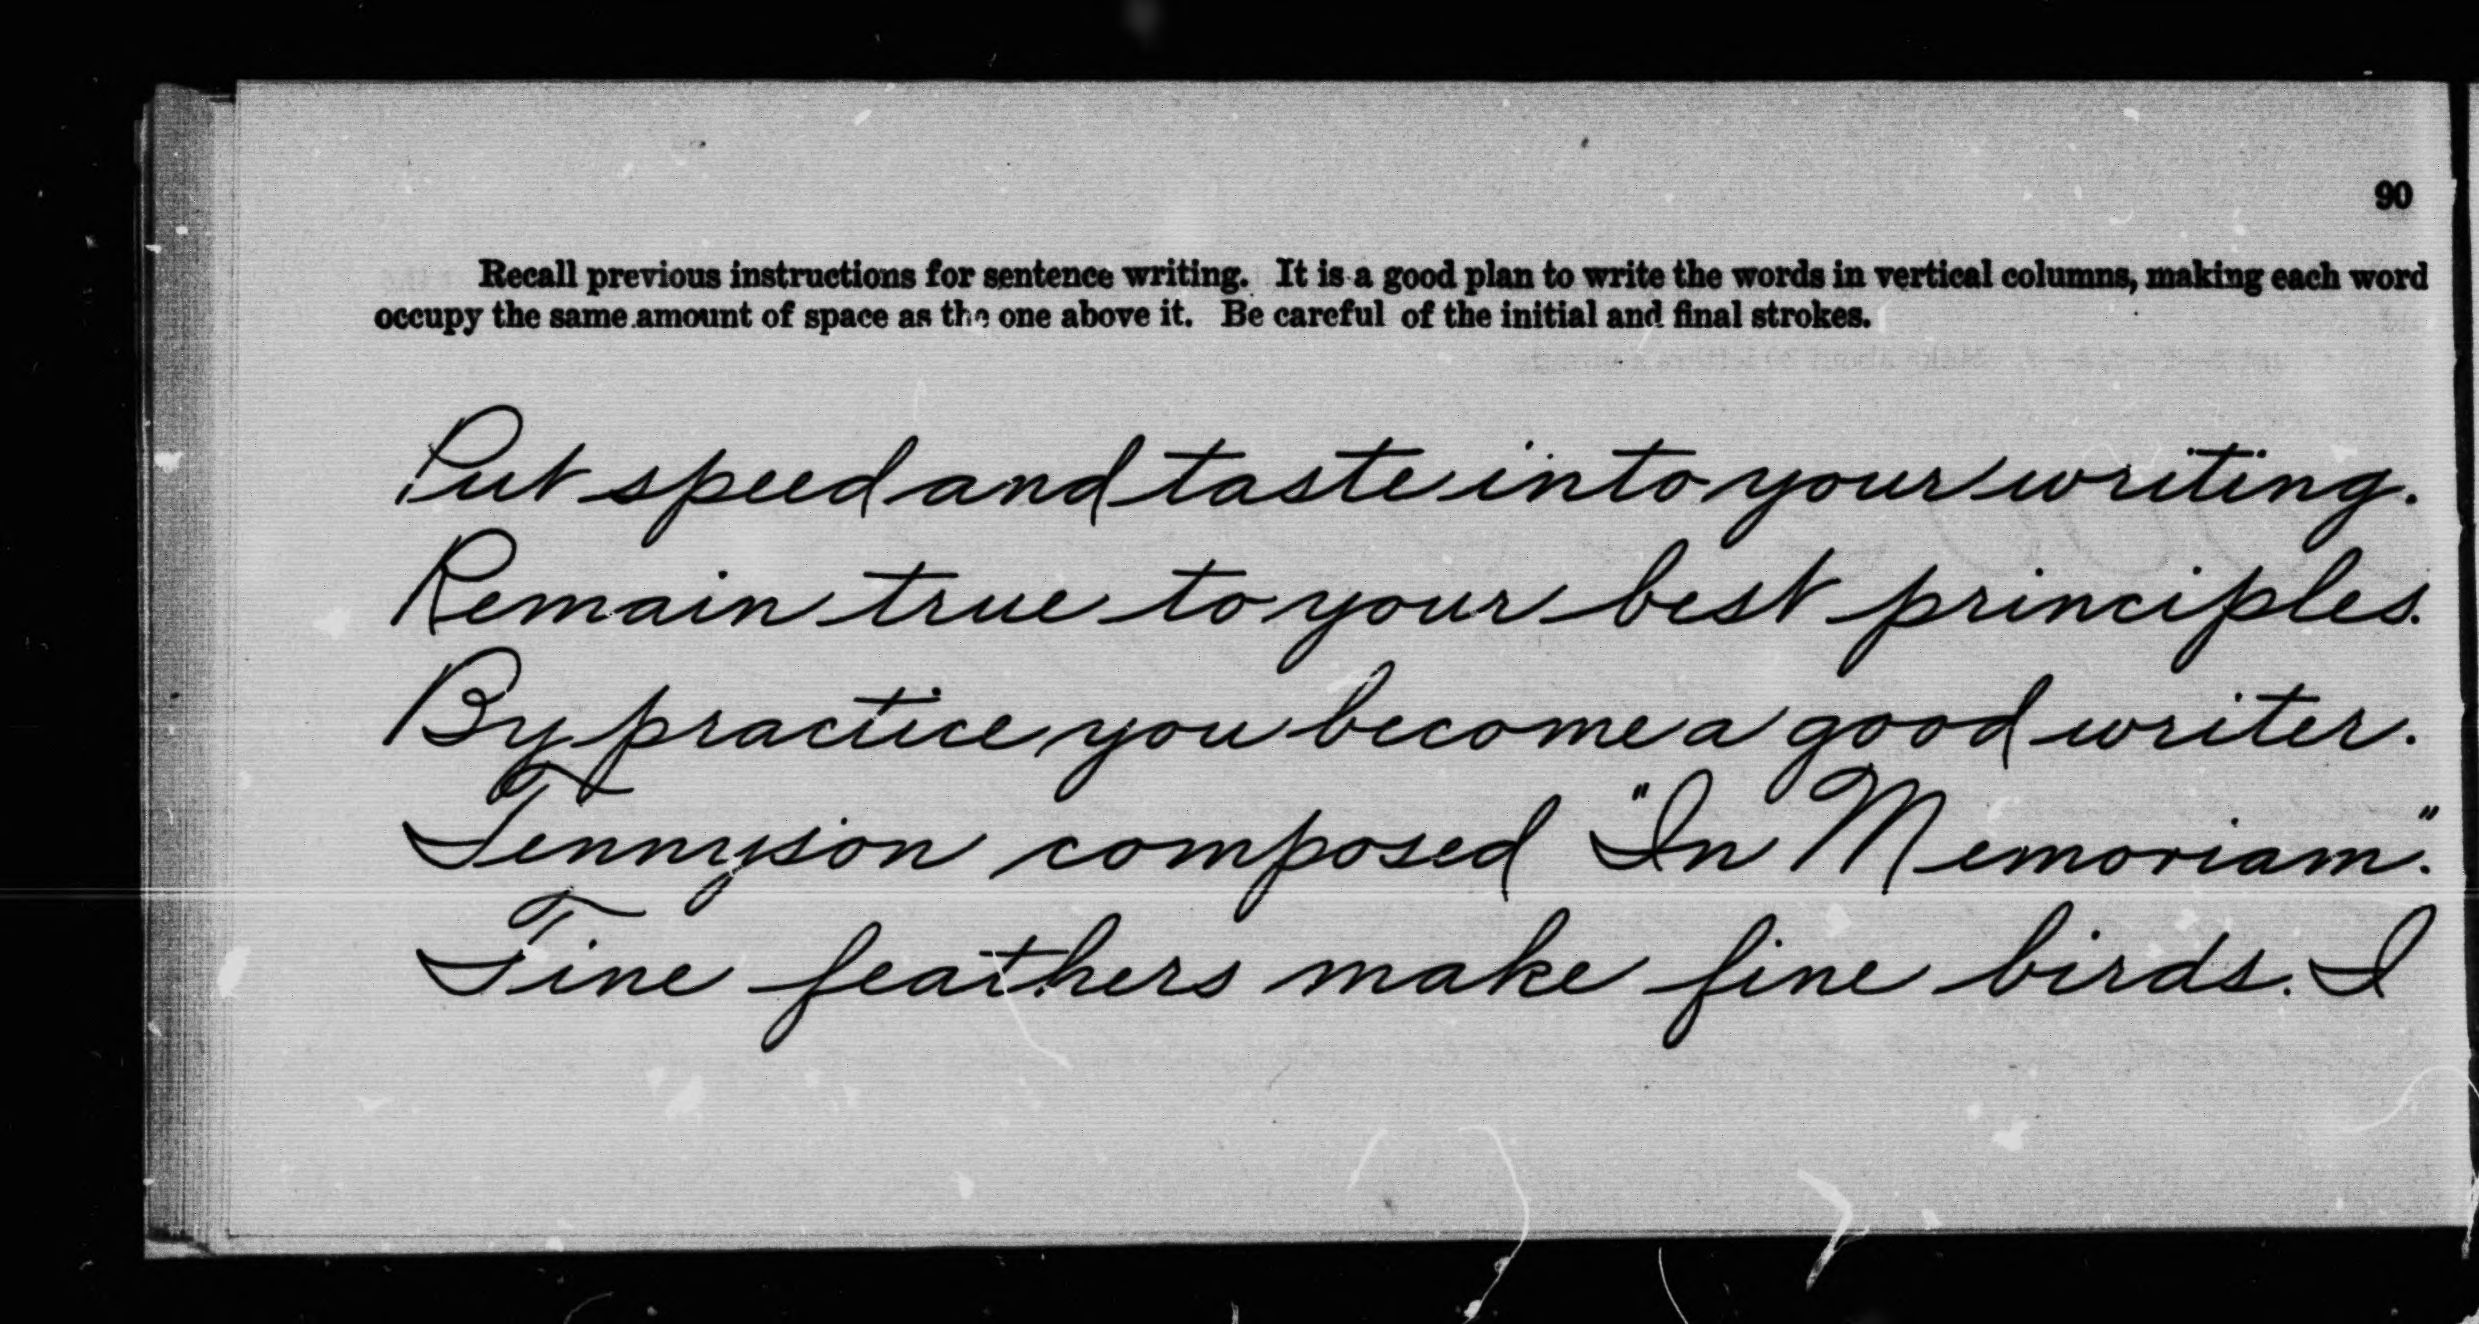 90
Recall previous instructions for sentence writing. It is a good plan to write the words in vertical columns, making each word
occupy the same amount of space as the one above it. Be careful of the initial and final strokes.
Put speed and taste into your writing.
Remain true to your best principles.
By practice you become a good writer.
Tennyson composed "In Memoriam."
Fine feathers make fine birds. I